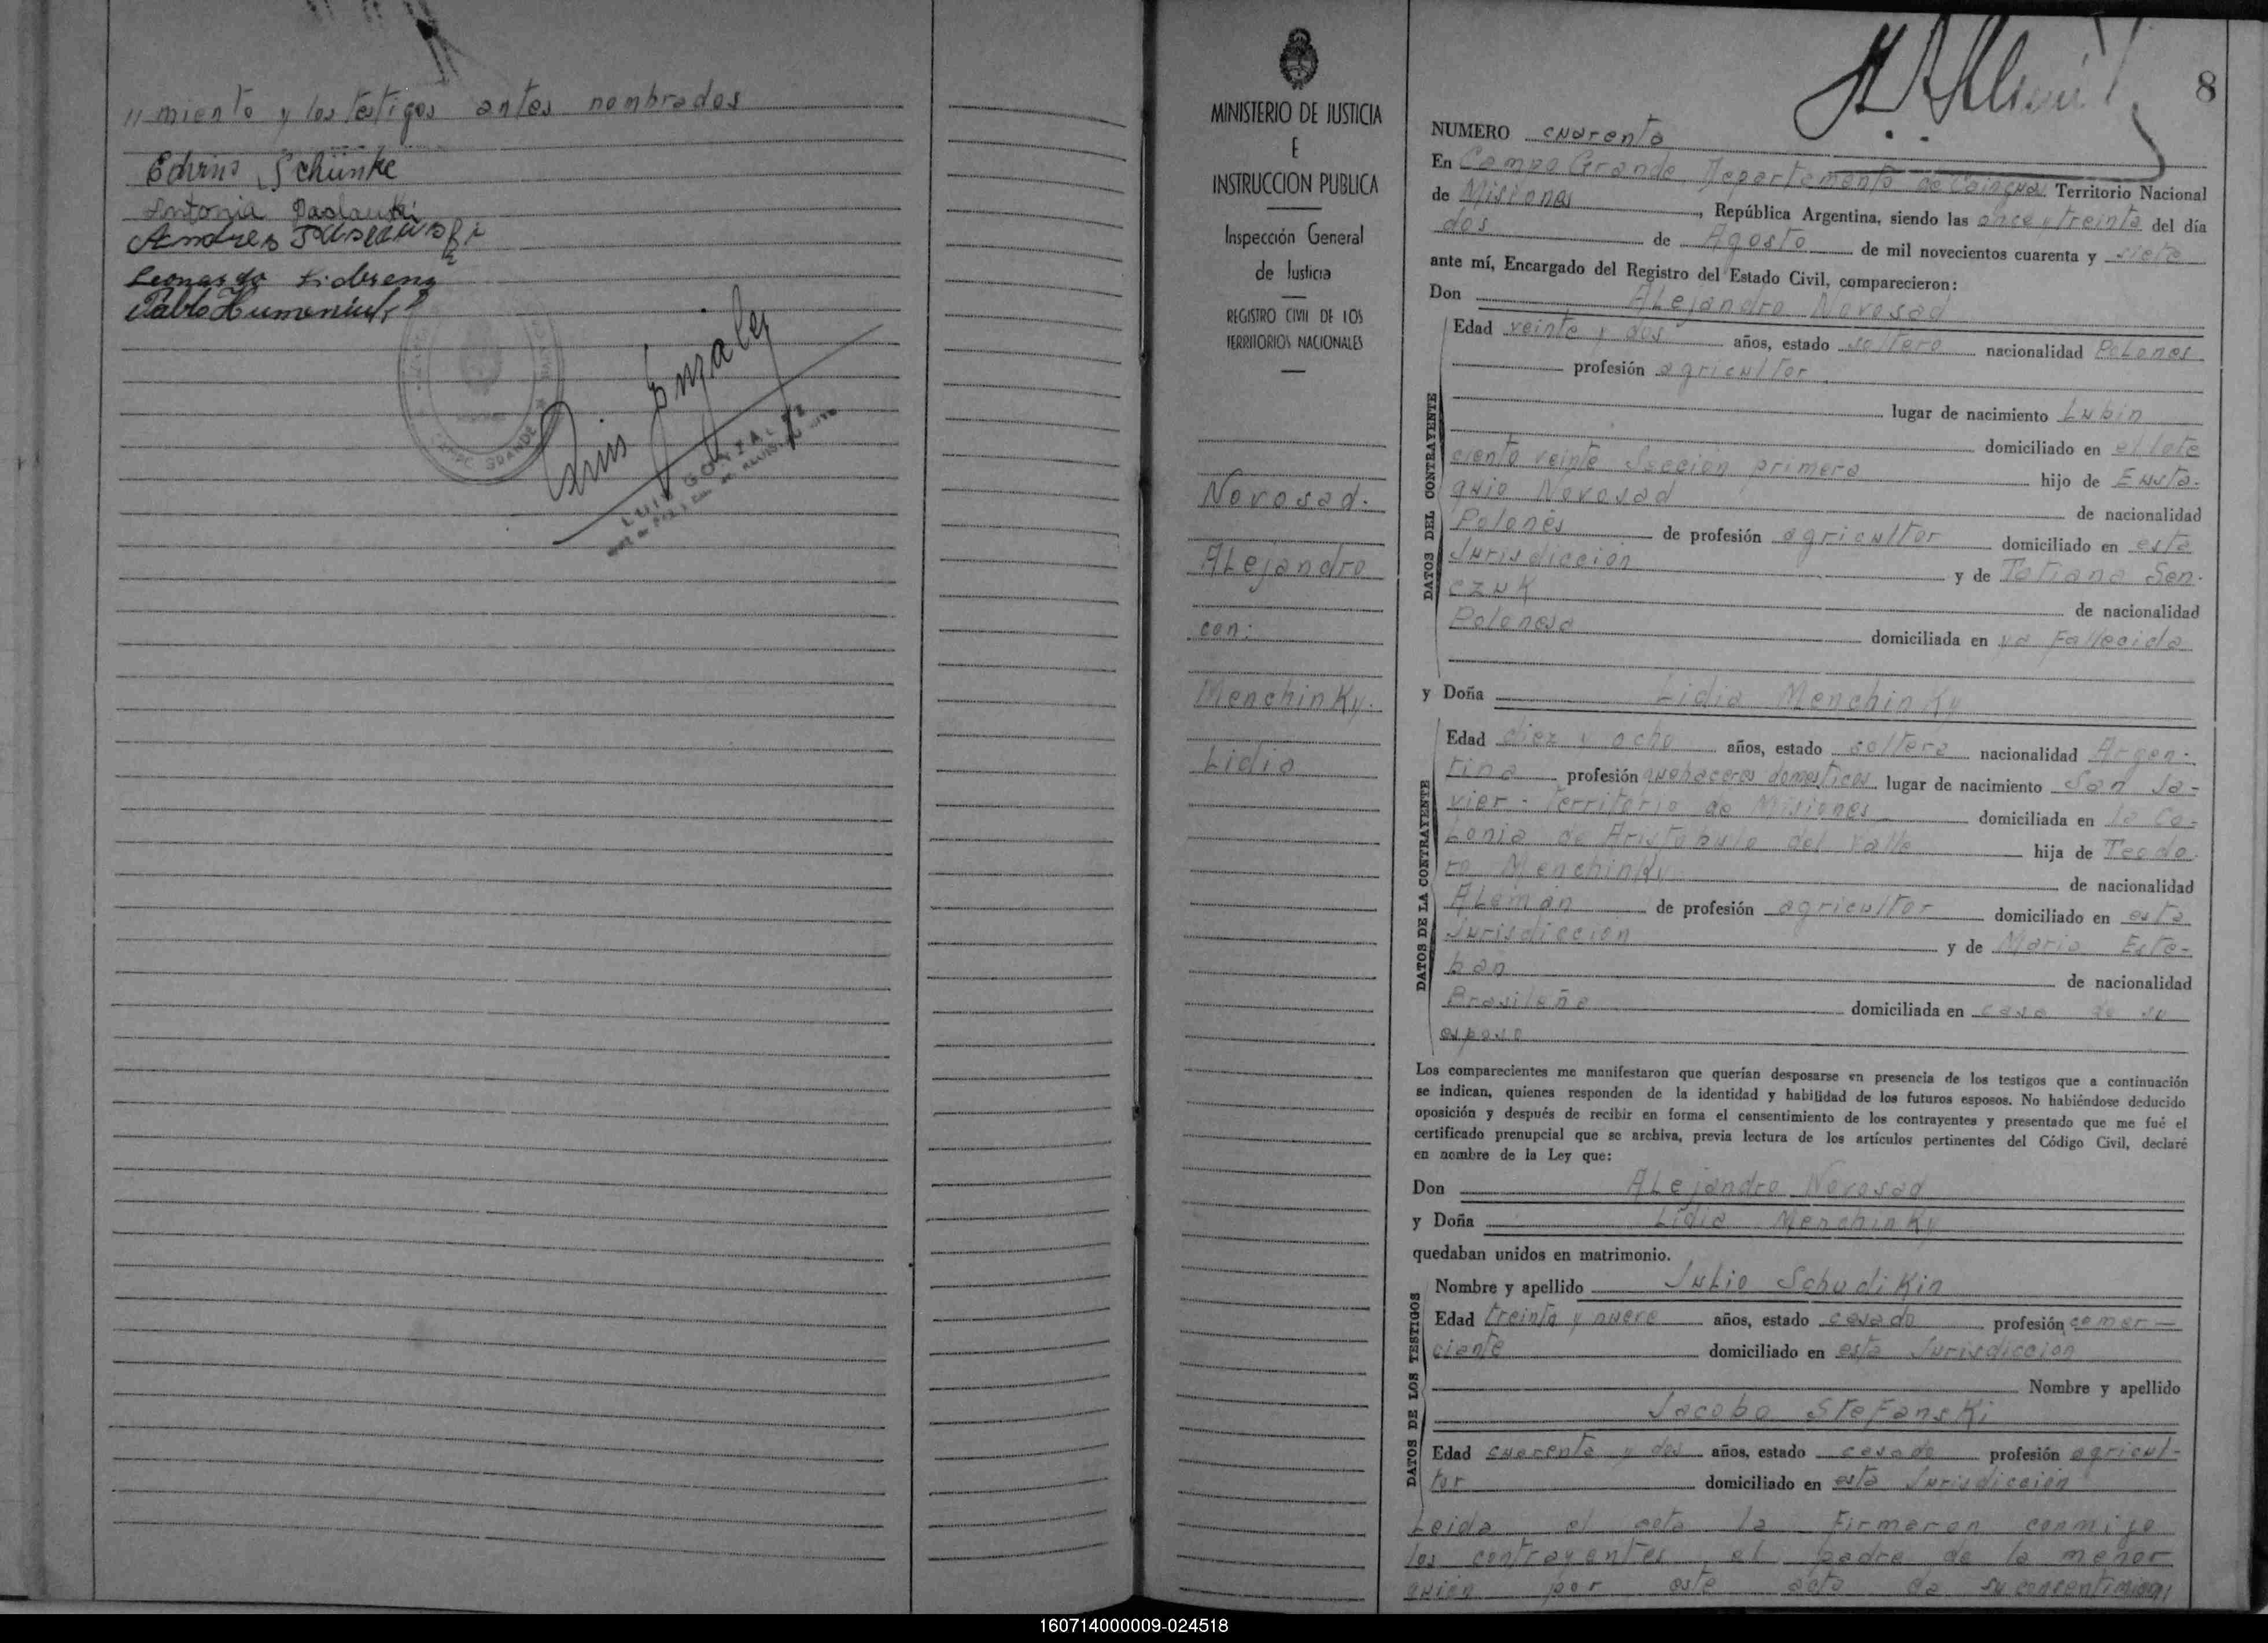 " miento y los testigos antes nombrados
Edvino Schünke
Antonia
Andres
Leonardo
Pablo Humeniuk
CAMPO GRANDE
Luis Gonzalez
LUIS GONZALEZ
MINISTERIO DE JUSTICIA
E
INSTRUCCION PUBLICA
Inspección General
de Justicia
REGISTRO CIVIL DE LOS
TERRITORIOS NACIONALES
Novosad.
Alejandro
con:
Menchinky.
Lidia
8
NUMERO cuarenta
En Campo Grande, Departamento de Cainguas Territorio Nacional
de Misiones, República Argentina, siendo las once y treinta del día
dos de Agosto de mil novecientos cuarenta y siete
ante mí, Encargado del Registro del Estado Civil, comparecieron:
Don Alejandro Novosad
DATOS DEL CONTRAYENTE
Edad veinte y dos años, estado soltero nacionalidad Polones
profesión agricultor
lugar de nacimiento Lubin
domiciliado en el lote
ciento veinte Sección primera hijo de Eusta-
quio Novosad de nacionalidad
Polonés de profesión agricultor domiciliado en esta
Jurisdicción y de Tatiana Sen-
czuk de nacionalidad
Polonesa domiciliada en ya Fallecida
y Doña Lidia Menchinky
DATOS DE LA CONTRAYENTE
Edad diez y ocho años, estado soltera nacionalidad Argen-
tina profesión quehaceres domesticos lugar de nacimiento San Ja-
vier - Territorio de Misiones domiciliada en la Co-
lonia de Aristobulo del Valle hija de Teodo-
ro Menchinky de nacionalidad
Alemán de profesión agricultor domiciliado en esta
Jurisdiccion y de Maria Este-
ban de nacionalidad
Brasileña domiciliada en casa de su
esposo
Los comparecientes me manifestaron que querían desposarse en presencia de los testigos que a continuación
se indican, quienes responden de la identidad y habilidad de los futuros esposos. No habiéndose deducido
oposición y después de recibir en forma el consentimiento de los contrayentes y presentado que me fué el
certificado prenupcial que se archiva, previa lectura de los artículos pertinentes del Código Civil, declaré
en nombre de la Ley que:
Don Alejandro Novosad
y Doña Lidia Menchinky
quedaban unidos en matrimonio.
DATOS DE LOS TESTIGOS
Nombre y apellido Julio Schudikin
Edad treinta y nueve años, estado casado profesión comer-
ciante domiciliado en esta Jurisdiccion
Nombre y apellido
Jacobo Stefanski
Edad cuarenta y dos años, estado casado profesión agricul-
tor domiciliado en esta Jurisdicción
Leida el acta la Firmaron conmigo
los contrayentes, el padre de la menor
quien por este acto da su consentimien
160714000009-024518